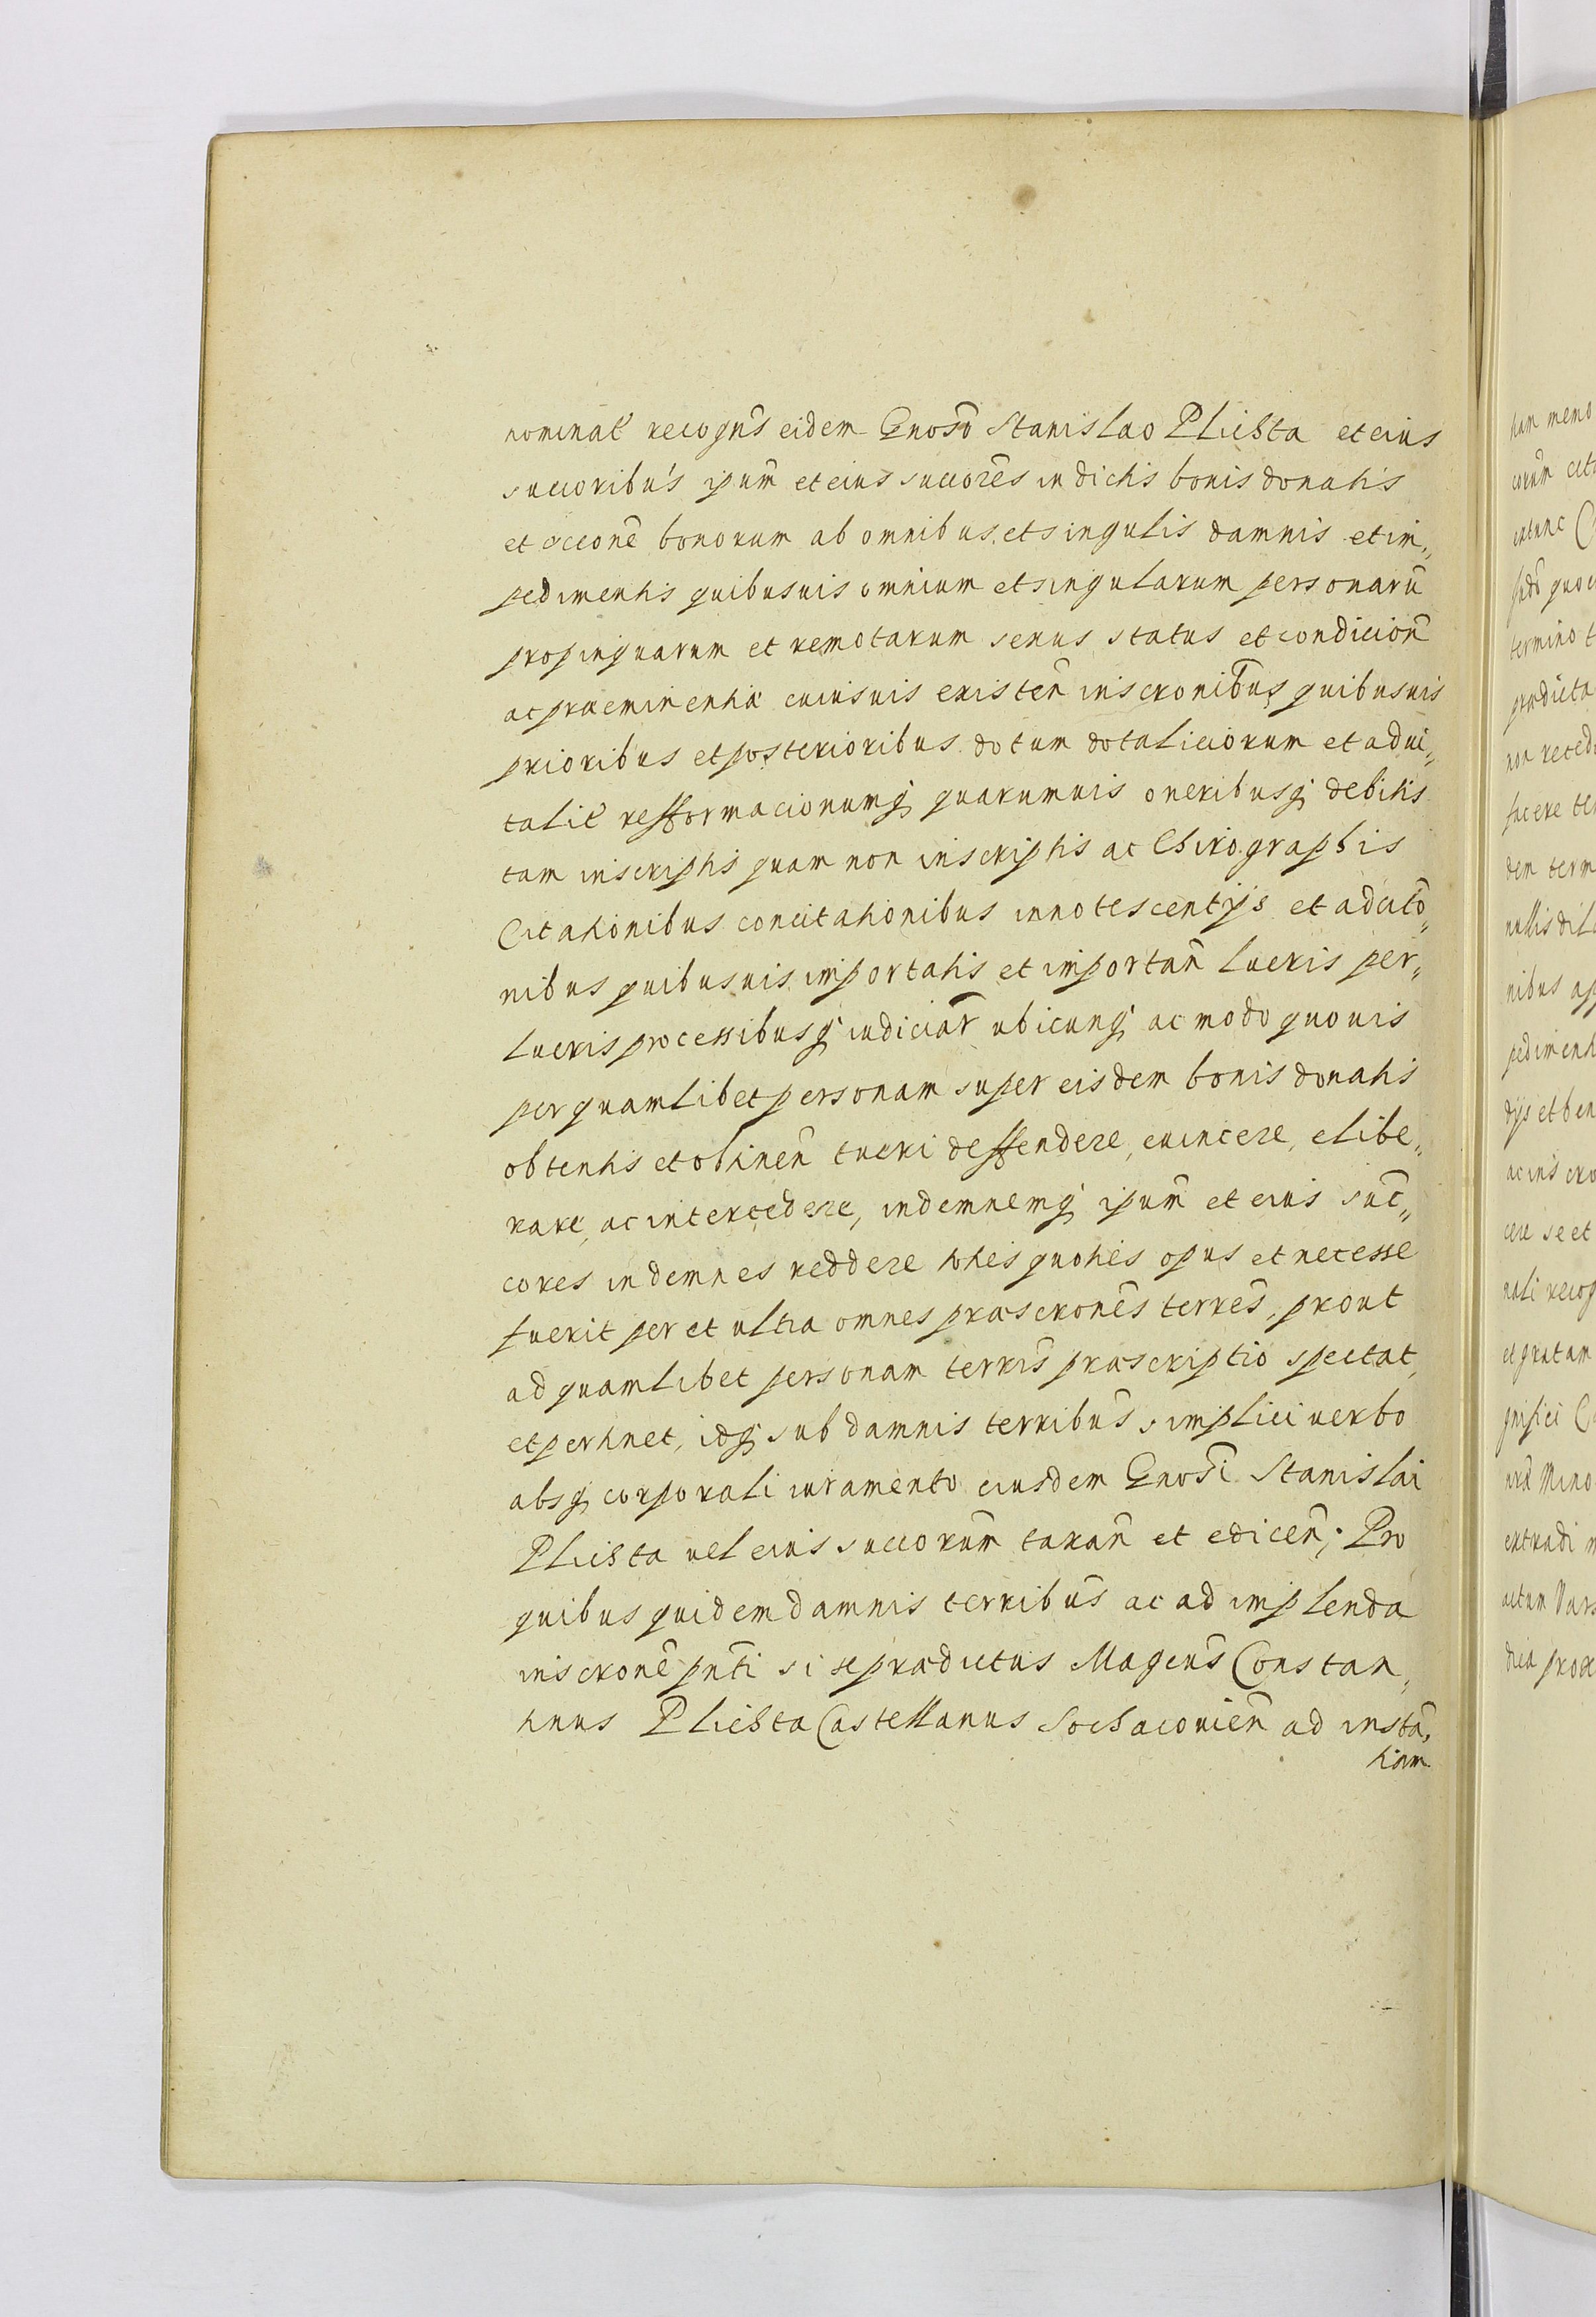 nominat recogns̃ eidem Gnoso̅ Stanislao Plichta et eius
succoribus̃ ipum̃ et eius succores̃ in dictis bonis donatis
et occone̅ bonorum ab omnibus et singulis damnis et im„
pedimentis quibusuis omnium et singularum personaru̅
propinquarum et remotarum sexus status et condicion̅
ac praeminentiæ cuiusuis existen̅ inscronibus̅ quibusuis
prioribus et posterioribus dotum dotaliciorum et adui„
talit refformacionumq quarumuis oneribusq debitis
tam inscriptis quam non inscriptis ac Chirographis
Citationibus concitationibus innotescentijs et adcito̅„
nibus quibusuis importatis et importan̅ lucris per„
lucris processibusq iudiciar̅ ubicunq ac modo quouis
per quamlibet personam super eisdem bonis donatis
obtentis et obtinen̅ tueri deffendere, euincere, elibe„
rare, ac intercedere, indemnemq ipum̅ et eius suc̅„
cores indemnes reddere toties quoties opus et necesse
fuerit per et ultra omnes præscrones̅ terres̅, prout
ad quamlibet personam terris̅ præscriptio spectat,
et pertinet, idq sub damnis terribus̅ simplici uerbo
absq corporali iuramento eiusdem Gnosi̅ Stanislai
Plichta uel eius succorum̅ taxan̅ et edicen̅; Pro
quibus quidem damnis terribus̅ ac adimplenda
inscrone̅ pnti̅ si se prædictus Magcus̅ Constan„
tinus Plichta Castellanus Sochaconien̅ ad insta̅„
tiam